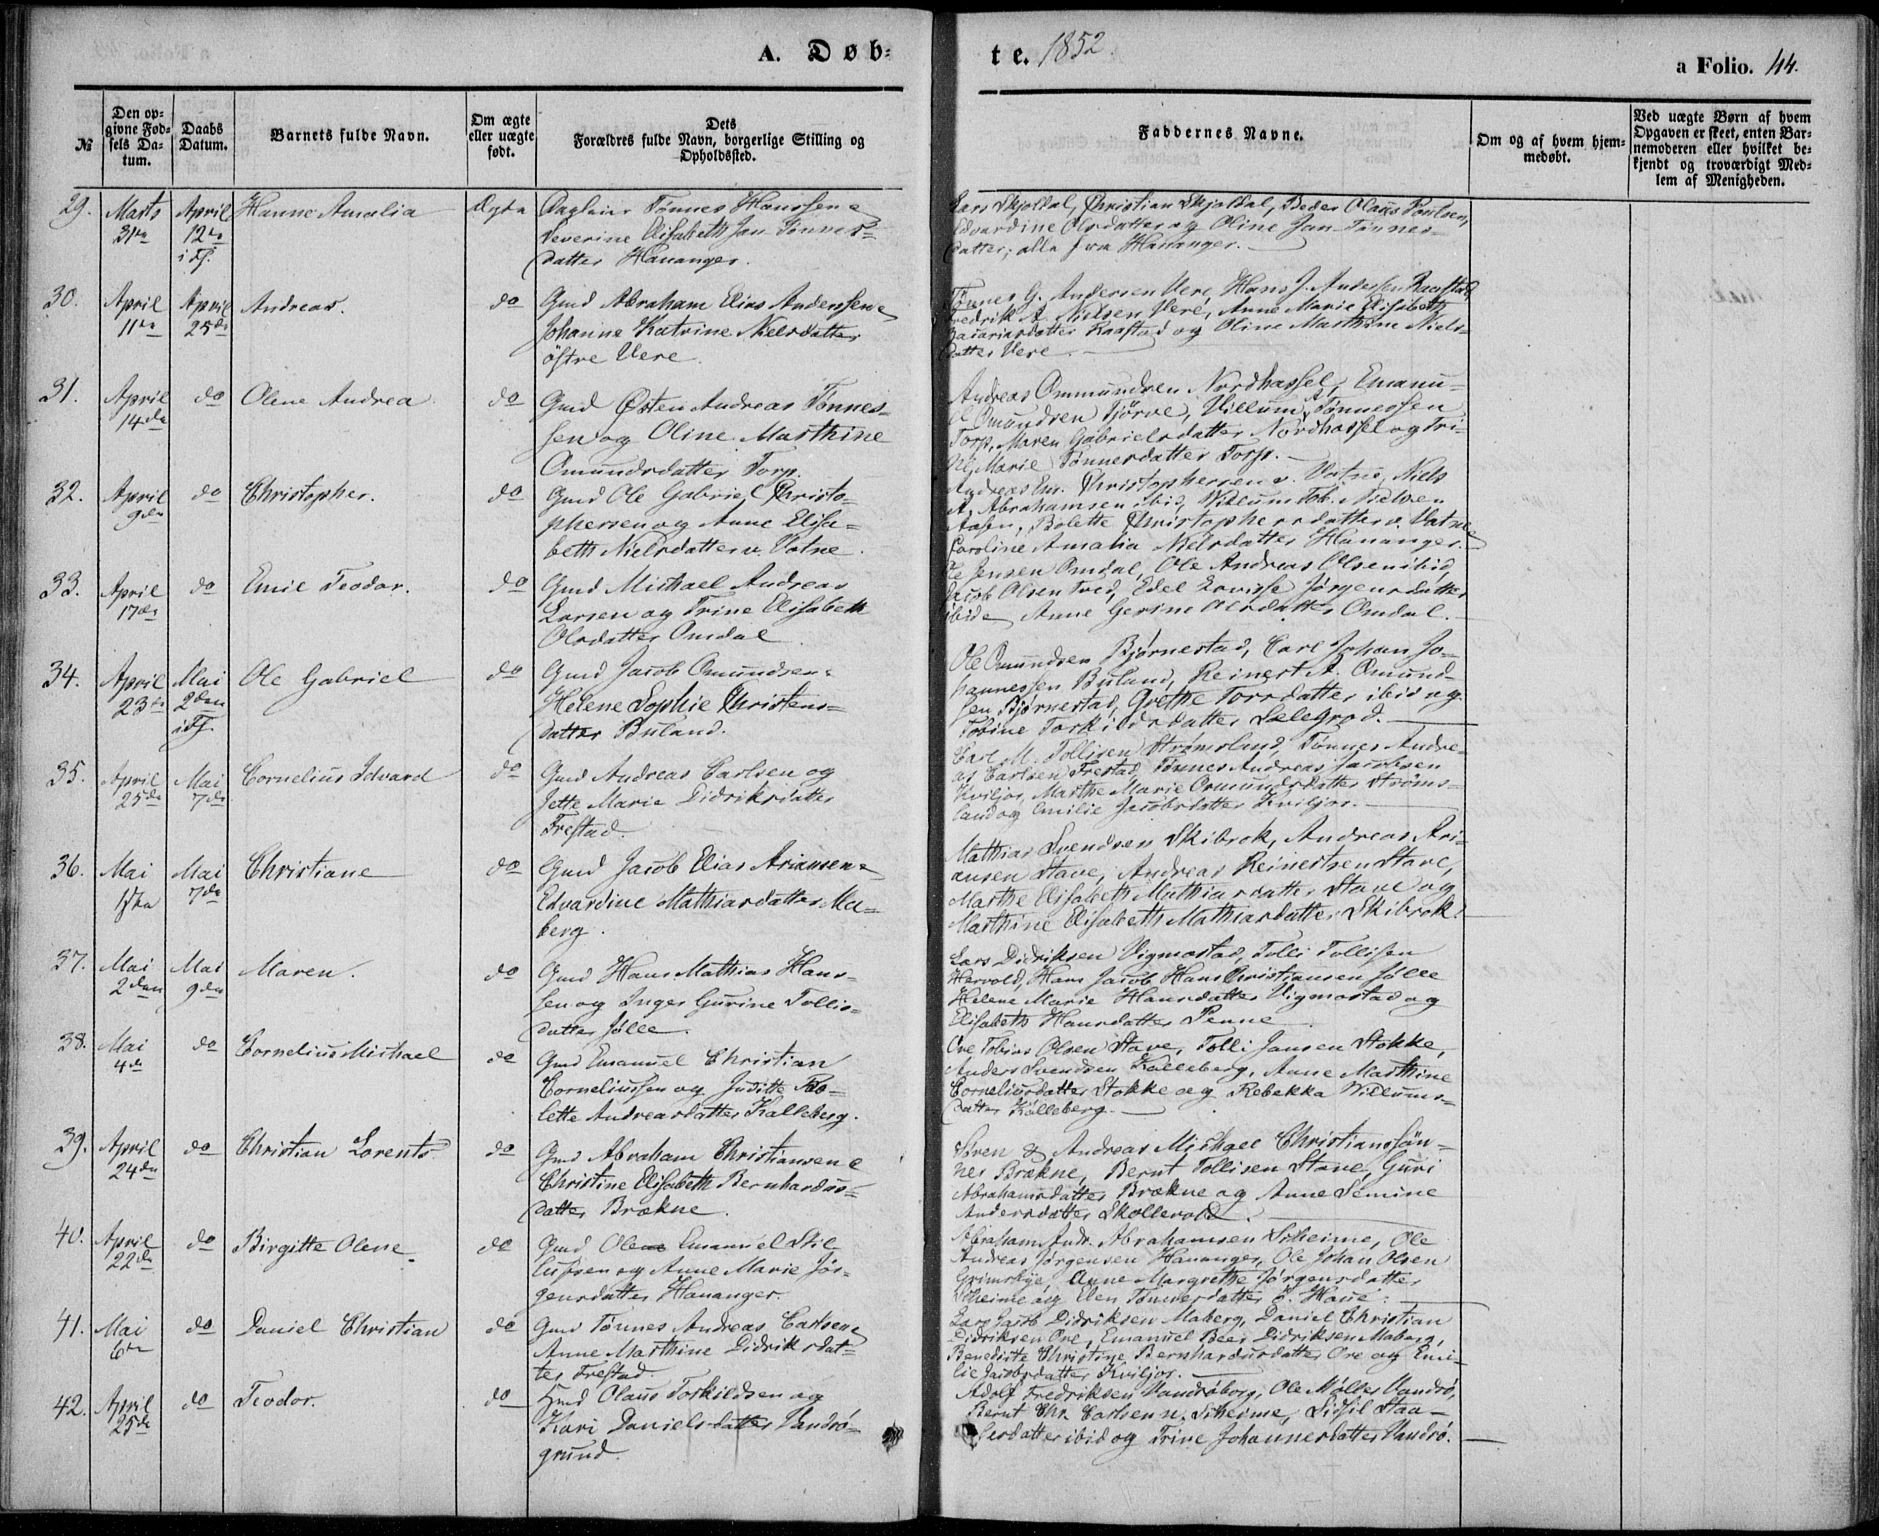 A. Døb-
te. 1852
a Folio. 44.
№
Den op-
givne Fød-
sels Da-
tum.
Daabs
Datum.
Barnets fulde Navn.
Om ægte
eller uægte
født.
Dets
Forældres fulde Navn, borgerlige Stilling og
Opholdssted.
Faddernes Navne.
Om og af hvem hjem-
medøbt.
Ved uægte Børn af hvem
Opgaven er skeet, enten Bar-
nemoderen eller hvilket be-
kjendt og troværdigt Med-
lem af Menigheden.
29. Marts April Hanne Amalia Ægte Tønnes Hanssen
31te 12te Severine Elisabeth Jan Tønnes-
datter Hananger.
Lars Skjoldal, Christian Skjoldal, Peder Olaus Poulsen,
Edvardine Olsdatter og Oline Jan Tønnes-
datter, alle fra Hananger.
30. April April Andreas. do Gmd Abraham Elias Anderssen
11te 25de Johanne Katrine Nielsdatter
østre Vere
Tønnes G. Andersen Vere, Hans J. Andersen Raastad,
Fredrik A. Nielsen Vere, Anne Marie Elisabeth
Zacariasdatter Raastad og Oline Marthine Niels-
datter Vere.
31. April do Olene Andrea do Gmd Østen Andreas Tønnes-
14de sen og Oline Marthine
Omundsdatter Torp.
Andreas Ommundsen Nordhassel, Emanu-
el Omundsen Tjørve, Villum Tønnessen
Torp, Maren Gabrielsdatter Nordhassel og
Marie Tønnesdatter Torp.
32. April do Christopher. do Gmd Ole Gabriel Christo-
9de phersen og Anne Elisa-
beth Nielsdatter v. Vatne.
Andreas Em. Christophersen v. Vatne, Niels
A. Abrahamsen ibid, Villum Tob. Nielsen
Aasen, Bolette Christophersdatter v. Vatne
Caroline Amalia Nielsdatter Hananger.
33. April do Emil Teodor. do Gmd Michael Andreas
17de Larsen og Trine Elisabeth
Olsdatter Omdal
Ole Jensen Omdal, Ole Andreas Olsen ibid,
Jacob Olsen Tved, Edel Lovisse Jørgensdatter
ibid Anne Gerine Olsdatter Omdal.
34. April Mai Ole Gabriel do Gmd Jacob Omundsen
23de 2den Helene Sophie Christens-
datter Buland.
Ole Omundsen Bjørnestad, Carl Johan Jo-
hannessen Buland, Reinert A. Omund-
sen Bjørnestad, Grethe Torsdatter ibid og
Tobine Torkildsdatter Lælegrod.
35. April Mai Cornelius Edvard do Gmd Andreas Carlsen og
25de 7de Jette Marie Didriksdatter
Frestad.
Carl M. Tollisen Strømsland, Tønnes Andre-
as Carlsen Frestad, Tønnes Andreas Jacobsen
Kviljos, Marthe Marie Omundsdatter Strøms-
land og Emilie Jacobsdatter Kviljos.
36. Mai Mai Christiane do Gmd Jacob Elias Ariansen
1ste 7de Edvardine Mathiasdatter Ma-
berg.
Mathias Svendsen Skibrok, Andreas Ari-
ansen Stave, Andreas Reinertsen Stave,
Marthe Elisabeth Mathiasdatter Stave og
Marthine Elisabeth Mathiasdatter Skibrok.
37. Mai Mai Maren. do Gmd Hans Mathias Hans-
2den 9de sen og Inger Gurine Tollis-
datter Jølle.
Lars Didriksen Vigmostad, Tolli Tollisen
Hervold, Hans Jacob Hans Christiansen Jølle
Helene Marie Hansdatter Vigmostad og
Elisabeth Hansdatter Penne
38. Mai do Cornelius Michael do Gmd Emanuel Christian
4de Corneliussen og Juditte
lette Andreasdatter Kalleberg.
Ove Tobias Olsen Stave, Tolli Jansen Stokke,
Anders Svendsen Kalleberg, Anne Marthine
Corneliusdatter Stokke og Rebekka Willums-
datter Kalleberg.
39. April do Christian Lorents do Gmd Abraham Christiansen
24de Christine Elisabeth Bernhardus-
datter Brækne.
Andreas Michael Christianssøn-
ner Brækne, Bernt Tollisen Stave, Guri
Abrahamsdatter Brækne og Anne Semine
Andersdatter Skollevold.
40. April do Birgitte Olene do Gmd Ole Emanuel
22de og Anne Marie Jør-
gensdatter Hananger.
Abraham Andr. Abrahamsen Skeime, Ole
Andreas Jørgensen Hananger, Ole Johan Olsen
Grimsbye, Anne Margrethe Jørgensdatter
Skeime og Elen Tønnesdatter
41. Mai do Daniel Christian do Gmd Tønnes Andreas Carlsen
6te Anne Marthine Didriksdat-
ter Frestad.
Lars Jacob Didriksen Maberg, Daniel Christian
Didriksen Ore, Emanuel Beer Didriksen Maberg,
Benedicte Christine Bernhardusdatter Ore og Emi-
lie Jacobsdatter Kviljos.
42. April do Teodor. do Hmd Olaus Torkildsen og
25de Kari Danielsdatter Vandsø-
grund.
Adolf Fredriksen Vandsøborg, Ole Møller Vandsø,
Bernt Chr. Carlsen n. Skeime, Sidsil Staa-
lesdatter ibid og Trine Johannesdatter Vandsø.